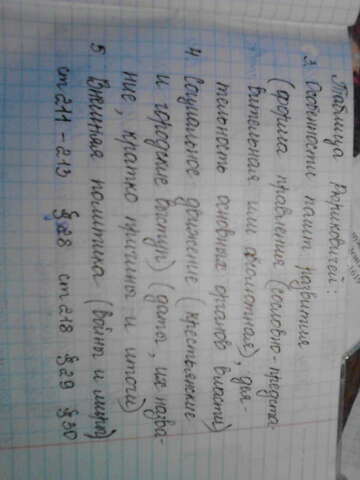 Таблица Рюриковичей:
3. Особенности полит развития
(форма правления (сословно-предста-
вительная или абсолютная), дея-
тельность основных органов власти)
4. Социальное движение (крестьянские
и городские выступ) (даты, их назва-
ние, кратко причины и итоги)
5 Внешняя политика (войны и миры)
ст 211 - 213 § 28 ст 218 § 29 § 30